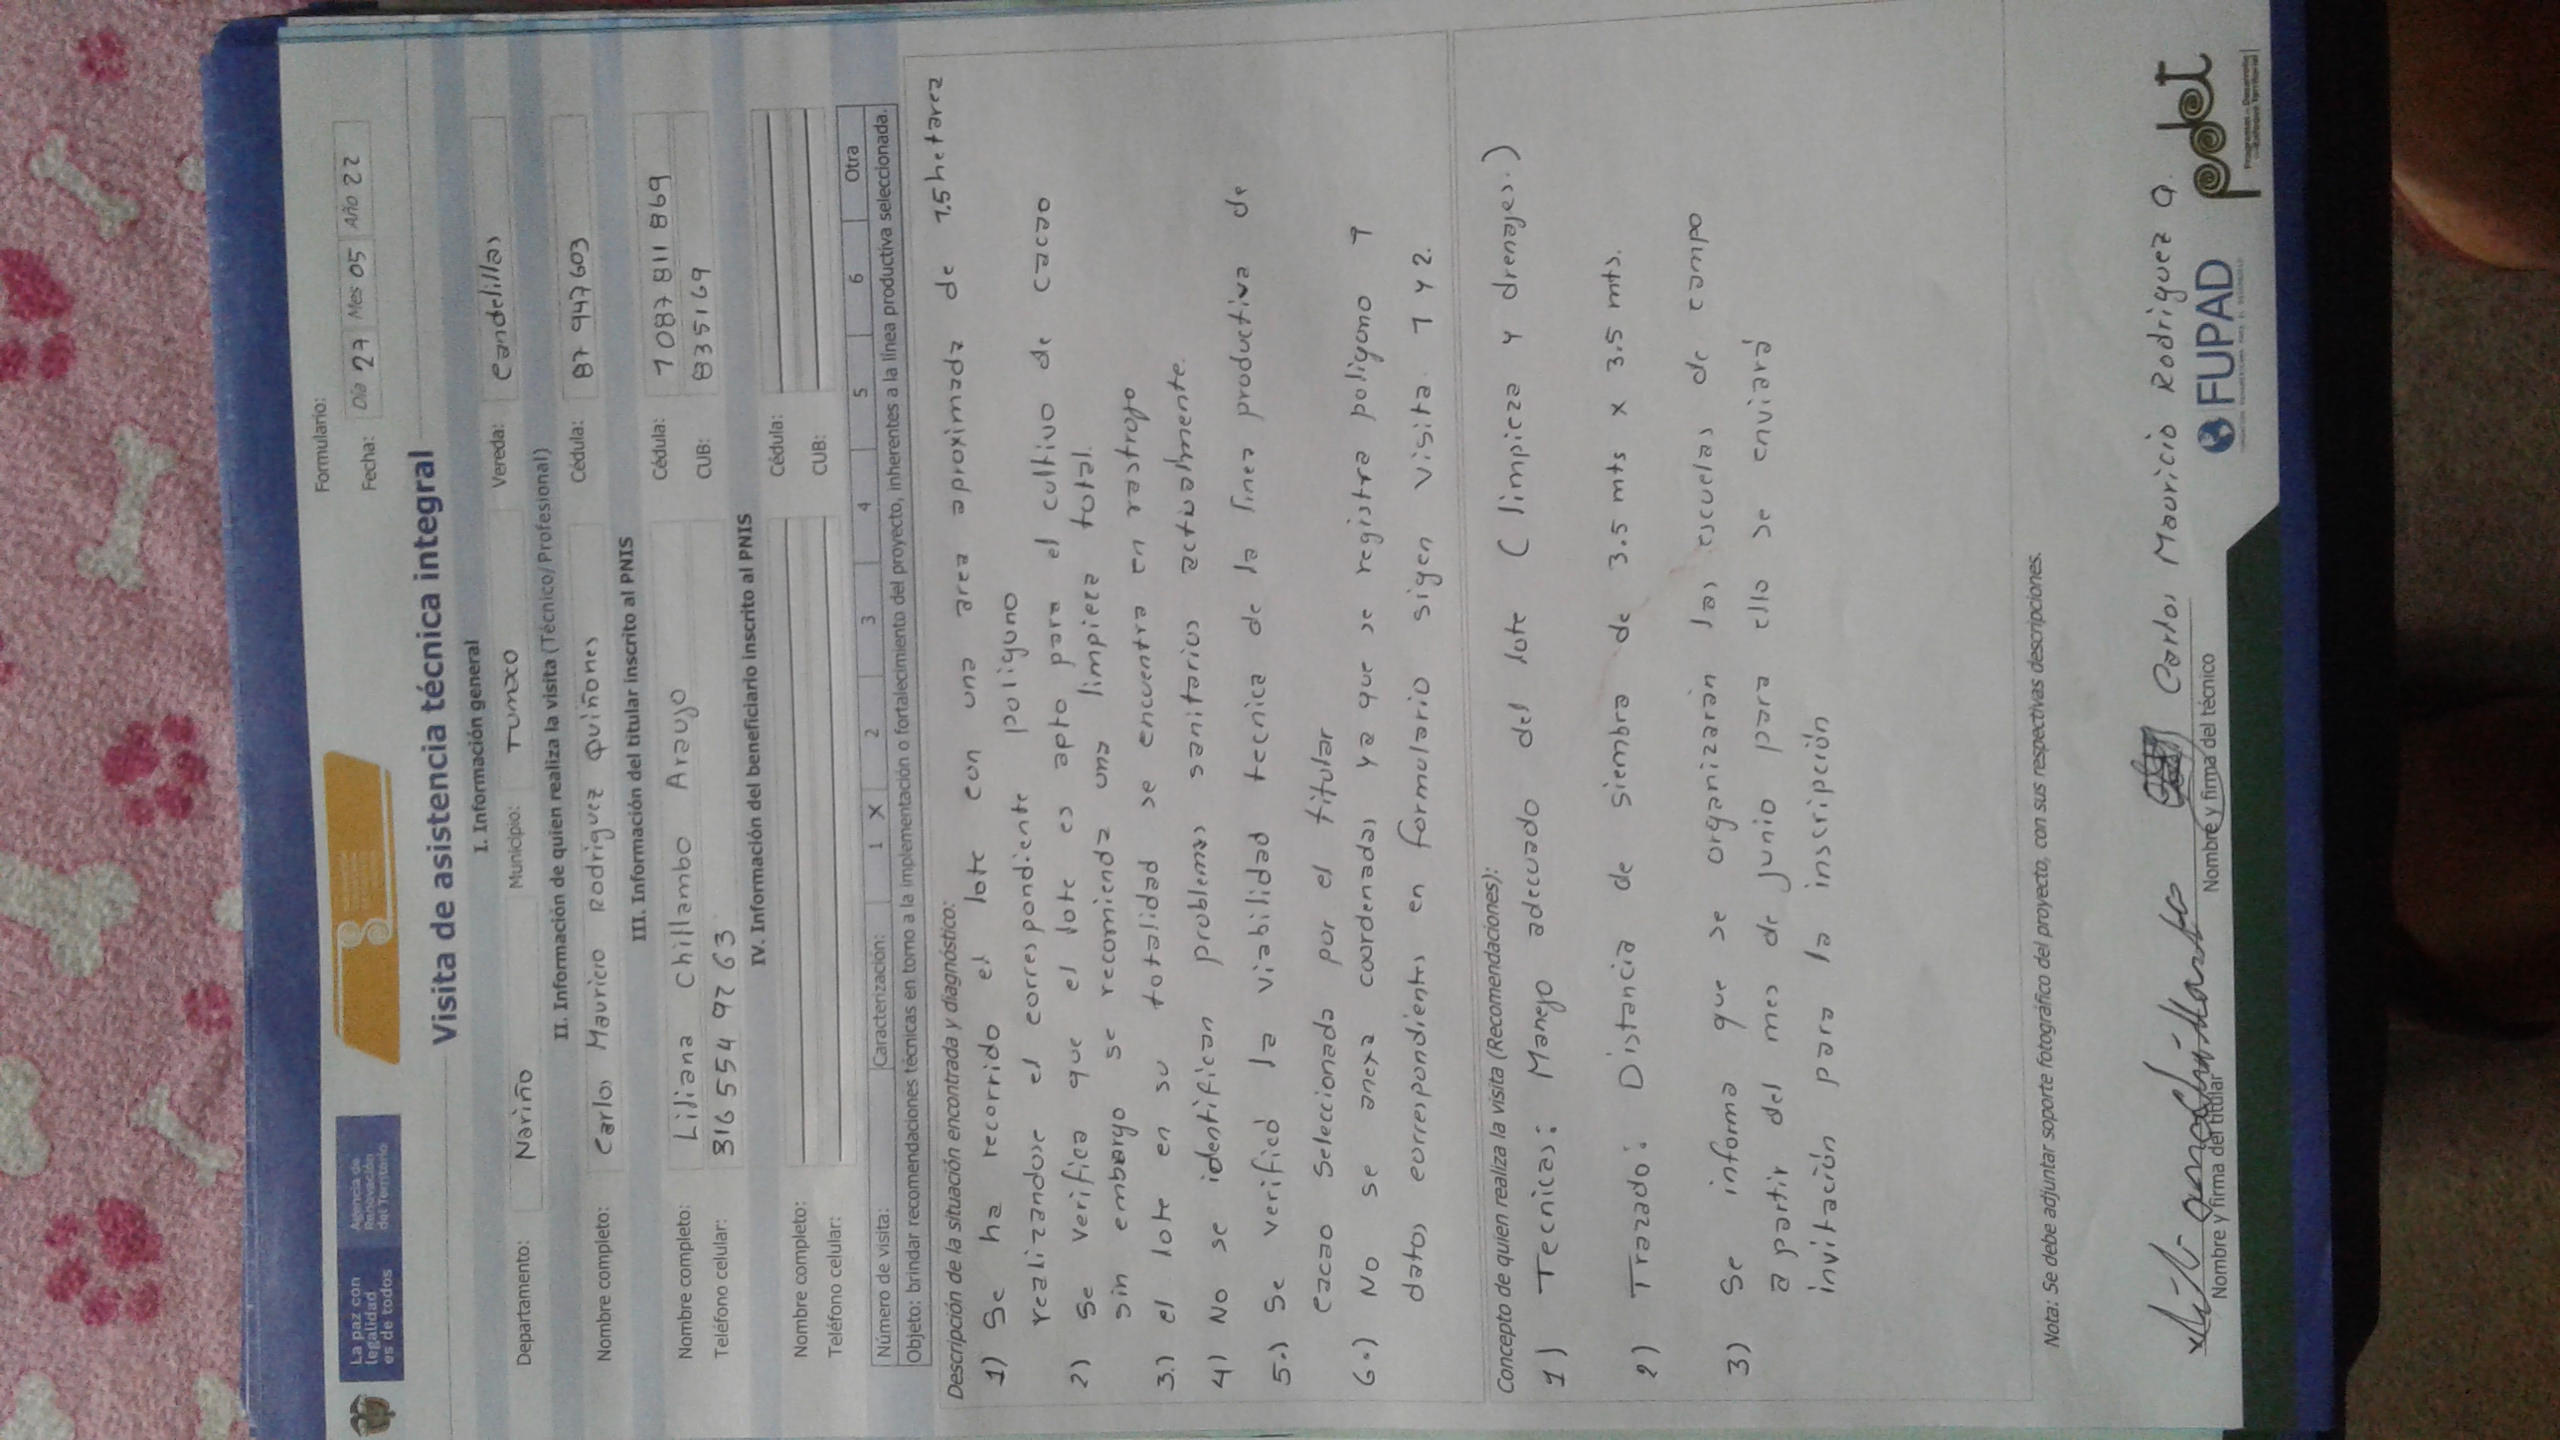 La paz con
legalidad
es de todos
Agencia de
Renovación
del Territorio
Formulario:
Fecha: Día 27 Mes 05 Año 22
Visita de asistencia técnica integral
I. Información general
Departamento: Nariño Municipio: Tumaco Vereda: Candelillas
II. Información de quien realiza la visita (Técnico/Profesional)
Nombre completo: Carlos Mauricio Rodriguez Quiñones Cédula: 87 947603
III. Información del titular inscrito al PNIS
Nombre completo: Liliana Chillambo Araujo Cédula: 1087 811 869
Teléfono celular: 316 554 92 63 CUB: 8335169
IV. Información del beneficiario inscrito al PNIS
Nombre completo: Cédula:
Teléfono celular: CUB:
Número de visita: Caracterización: 1 X 2 3 4 5 6 Otra
Objeto: brindar recomendaciones técnicas en torno a la implementación o fortalecimiento del proyecto, inherentes a la línea productiva seleccionada.
Descripción de la situación encontrada y diagnóstico:
1) Se ha recorrido el lote con una area aproximada de 1.5 hetarea
realizandose el correspondiente poliguno
2) se verifica que el lote es apto para el cultivo de cacao
sin embargo se recomienda una limpieza total.
3.) el lote en su totalidad se encuentra en rastrojo
4) No se identifican problemas sanitarios actualmente.
5.) Se verificó la viabilidad tecnica de la linea productiva de
cacao Seleccionada por el titular
6.) No se anexa coordenadas ya que se registra poligono 1
datos correspondientes en formulario sigen visita 1 y 2.
Concepto de quien realiza la visita (Recomendaciones):
1) Tecnicas: Manejo adecuado del lote (limpieza y drenajes.)
2) Trazado: Distancia de siembra de 3.5 mts x 3.5 mts.
3) Se informa que se organizarán las escuelas de campo
a partir del mes de junio para ello se enviará
invitación para la inscripción
Nota: Se debe adjuntar soporte fotográfico del proyecto, con sus respectivas descripciones.
Carlos Mauricio Rodriguez Q.
Nombre y firma del titular Nombre y firma del técnico
FUPAD
pdet
Programas de Desarrollo
con Enfoque Territorial